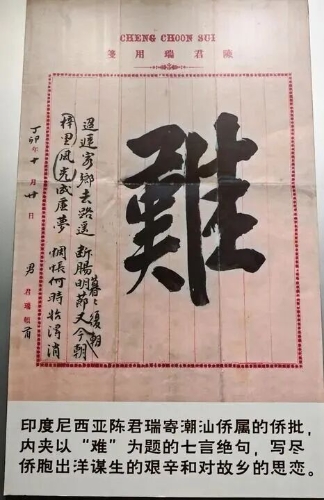 CHENG CHOON SUI
陳君瑞用箋
難
迢遞家鄉去路遥 斷腸明節又今朝
暮々復朝
梓里風光成虛夢 惆悵何時始得消
丁卯年十月廿日 君 君瑞
印度尼西亚陈君瑞寄潮汕侨属的侨批，
内夹以“难”为题的七言绝句，写尽
侨胞出洋谋生的艰辛和对故乡的思恋。